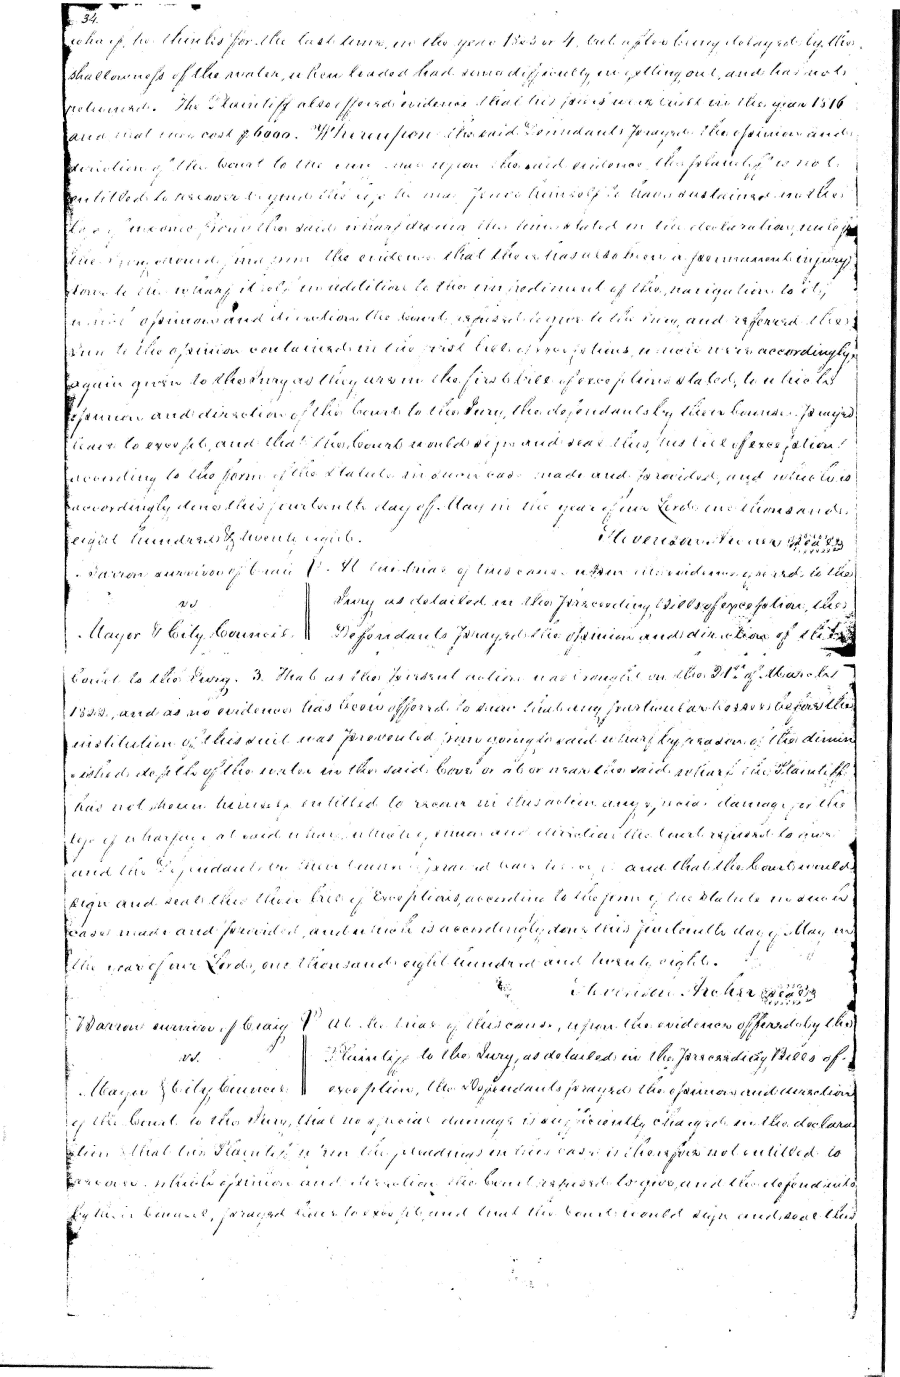 34.
wharf, he thinks for the last time, in the year 1803 or 4, but after being delayed by the
shallowness of the water, when loaded had some difficulty in getting out, and has not
returned. The Plaintiff also offered evidence that his piers were built in the year 1816
and that they cost $6000. Whereupon the said Defendants prayed the opinion and
direction of the Court to the Jury that upon the said evidence, the plaintiff is not
entitled to recover beyond the loss he may prove himself to have sustained in the
loss of income from the said wharf during the time stated in the declaration, unless
the Jury should find from the evidence that there has also been a permanent injury
done to the wharf itself in addition to the impediment of the navigation to it,
which opinion and direction the Court refused to give to the Jury, and referred the
Jury to the opinion contained in the first bill of exceptions, which were accordingly
again given to the Jury as they are in the first bill of exceptions stated, to which
opinion and direction of the Court to the Jury, the defendants by their Counsel prayed
leave to except, and that the Court would sign and seal this, his bill of exception
according to the form of the Statute in such case made and provided, and which is
accordingly done this fourteenth day of May in the year of our Lord one thousand
eight hundred & twenty eight.
Stevenson Archer (seal)
Barron survivor of Craig
vs
Mayor & City Council
At the trial of this cause upon the evidence offered to the
Jury as detailed in the preceeding Bills of exception, the
Defendants prayed the opinion and direction of the
Court to the Jury. 3. That as the present action was brought on the 21st of March
1822, and as no evidence has been offered to shew that any particular vessel before the
institution of this suit was prevented from going to said wharf by reason of the dimin
ished depth of the water in the said Cove or at or near the said wharf the Plaintiff
has not shewn himself entitled to recover in this action any special damage for the
loss of wharfage at said wharf, which opinion and direction the Court refused to give
and the Defendants by their Counsel prayed leave to except and that the Court would
sign and seal this their bill of Exceptions, according to the form of the Statute in such
case made and provided, and which is accordingly done this fourteenth day of May in
the year of our Lord, one thousand eight hundred and twenty eight.
Stevenson Archer (seal)
Barron survivor of Craig
vs.
Mayor & City Council
At the trial of this cause, upon the evidence offered by the
Plaintiff to the Jury, as detailed in the preceeding Bills of
exception, the Defendants prayed the opinion and direction
of the Court to the Jury, that no special damage is sufficiently charged in the declara
tion & that the Plaintiff upon the pleadings in this case is therefore not entitled to
recover. which opinion and direction the Court refused to give, and the defendants
by their Counsel, prayed leave to except, and that the Court would sign and seal this